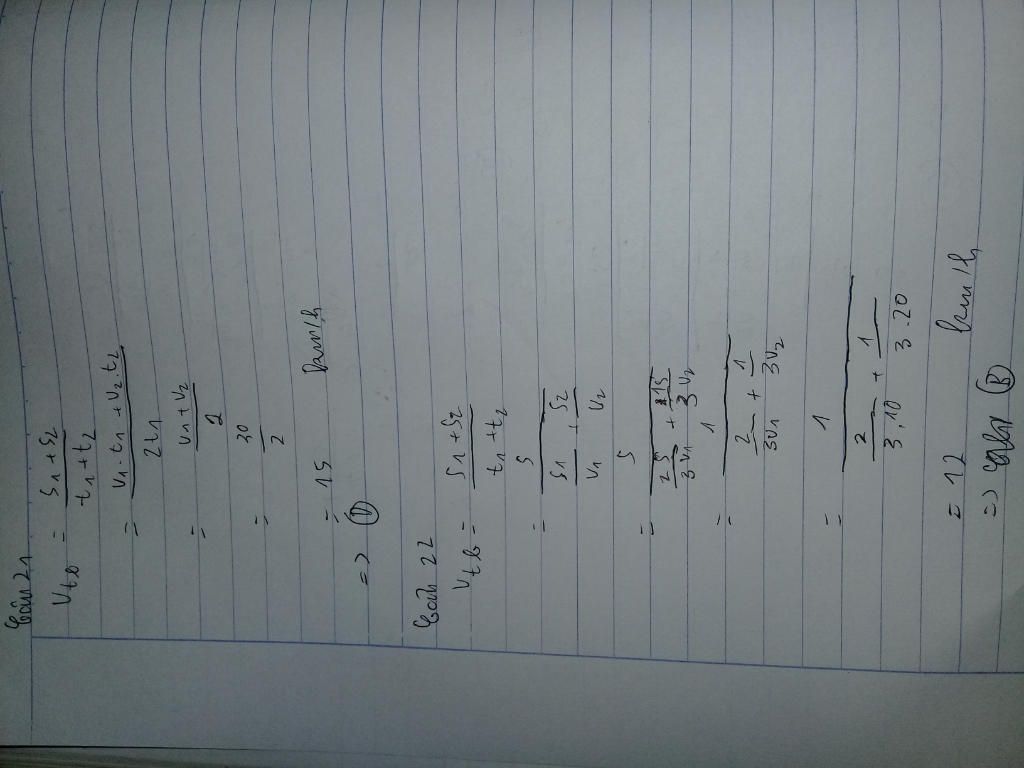 Câu 21
Vtb = S1 + S2 / t1 + t2
= V1 . t1 + V2 . t2 / 2t1
= V1 + V2 / 2
= 30 / 2
= 15 km/h
=> D
Câu 22
Vtb = S1 + S2 / t1 + t2
= S / S1 / V1 + S2 / V2
= S / 2S / 3V1 + 1S / 3V2
= 1 / 2 / 3V1 + 1 / 3V2
= 1 / 2 / 3.10 + 1 / 3.20
= 12 km/h
=> B